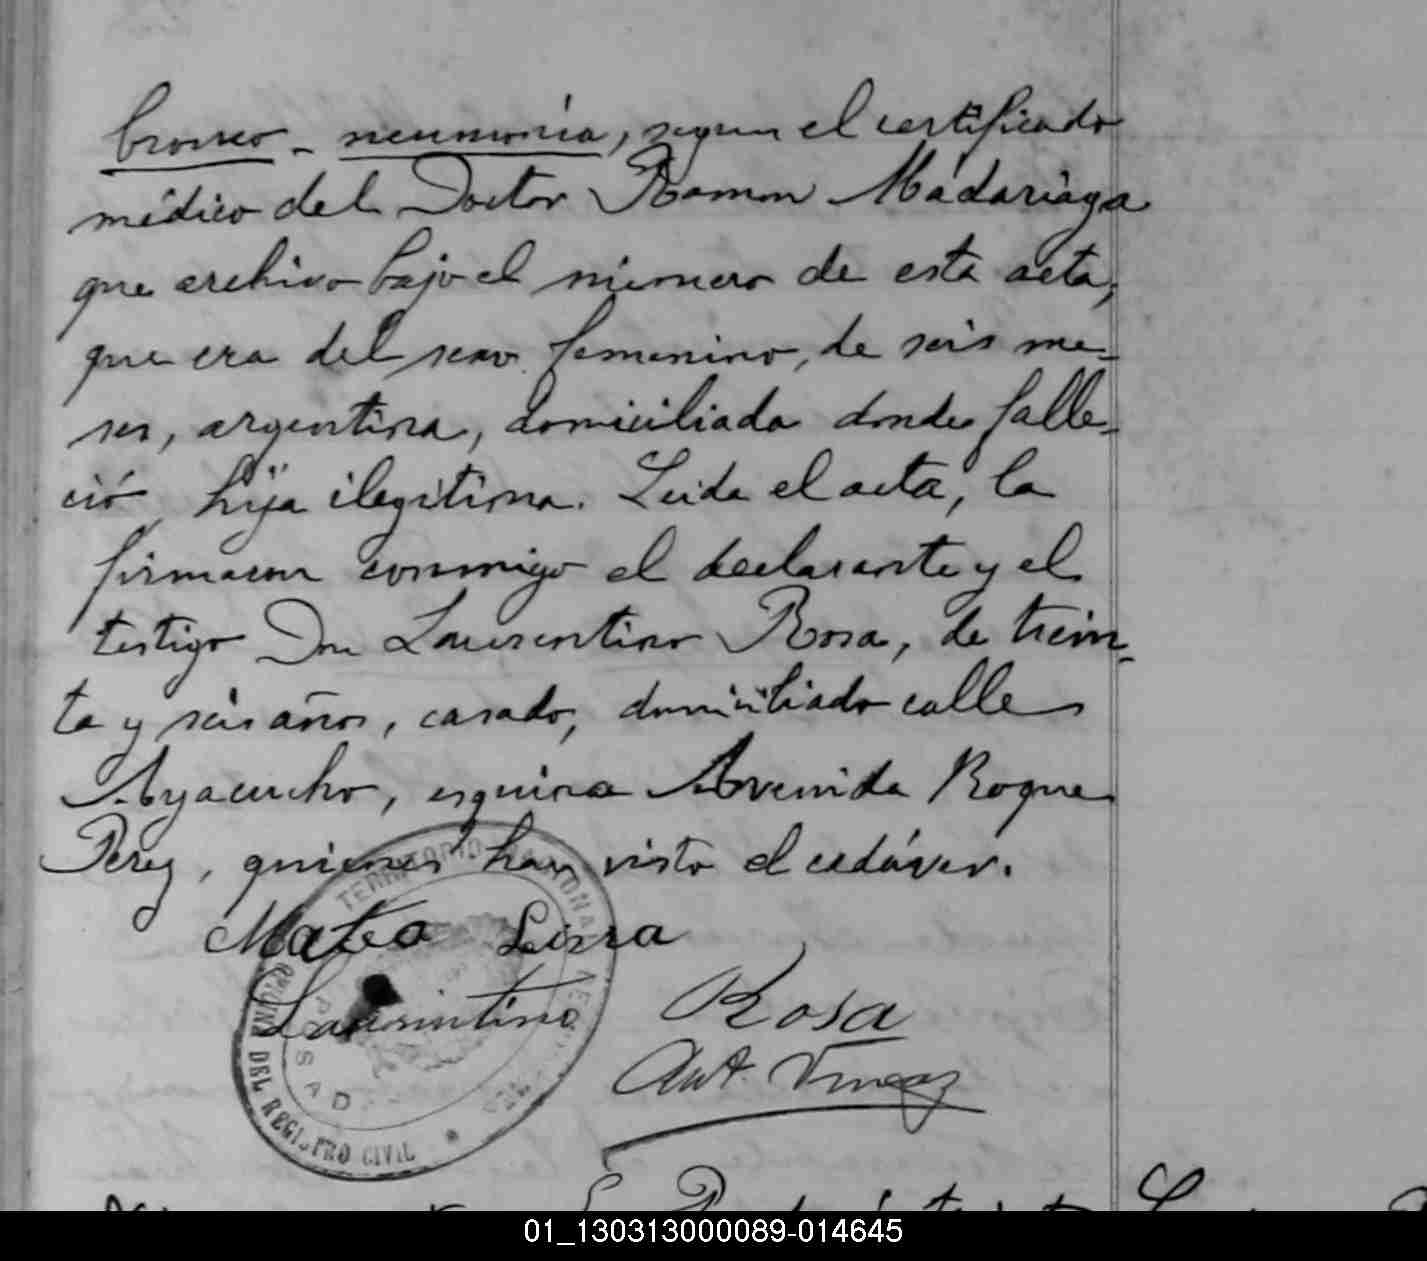 bronco-neumonía, segun el certificado
médico del Doctor Ramon Madariaga
que archivo bajo el número de esta acta,
que era del sexo femenino, de seis me-
ses, argentina, domiciliada donde falle-
ció, hija ilegítima. Leida el acta, la
firmaron conmigo el declarante y el
testigo Don Laurentino Rosa, de trein-
ta y seis años, casado, domiciliado calle
Ayacucho, esquina Avenida Roque
Perez, quienes han visto el cadáver.
Mateo
Laurintino Rosa
Ant.
TERRITORIO NACIONAL
OFICINA DEL REGISTRO CIVIL
POSAD
01_130313000089-014645